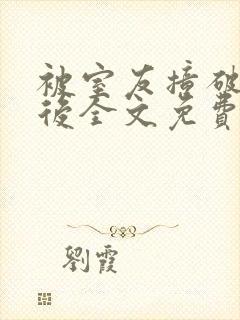 被室友撞破
後全文免費
劉霞